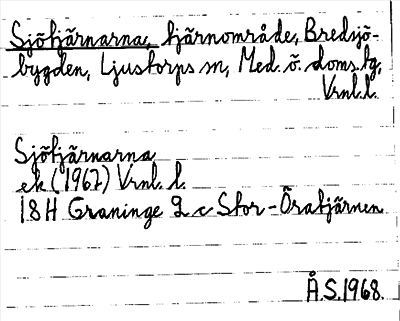 Sjötjärnarna, tjärnområde, Bredsjö-
bygden, Ljustorps sn, Med. ö. doms.tg,
Vrnl.l.
Sjötjärnarna
ek (1967) Vrnl. l.
18H Graninge 2 c Stor-Öratjärnen
Å.S.1968.